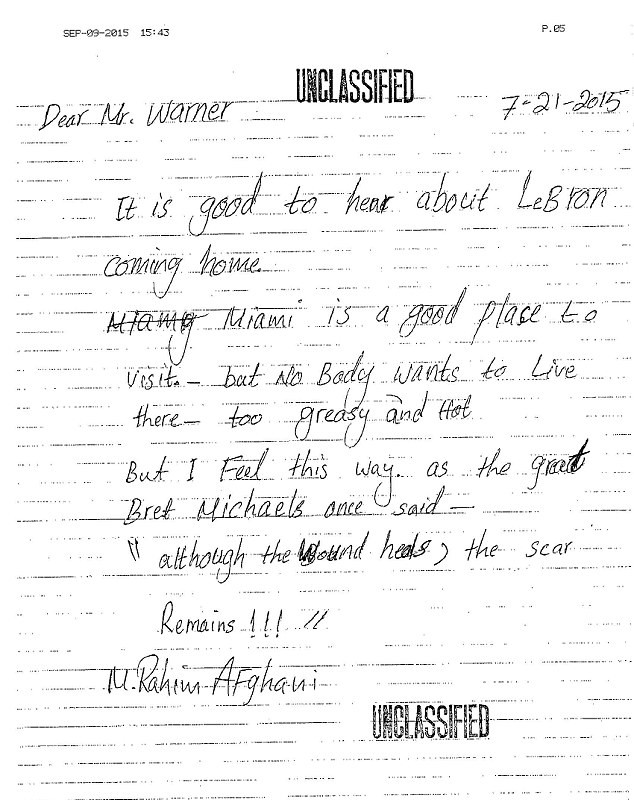 SEP-09-2015 15:43
P.05
UNCLASSIFIED
Dear Mr. Warner
7-21-2015
It is good to hear about LeBron
coming home.
Miamy Miami is a good place to
visit. – but No Body wants to Live
there – too greasy and Hot
But I Feel this way. as the great
Bret Michaels once said –
" although the Wound heals, the scar
Remains !!! "
M. Rahim Afghani
UNCLASSIFIED